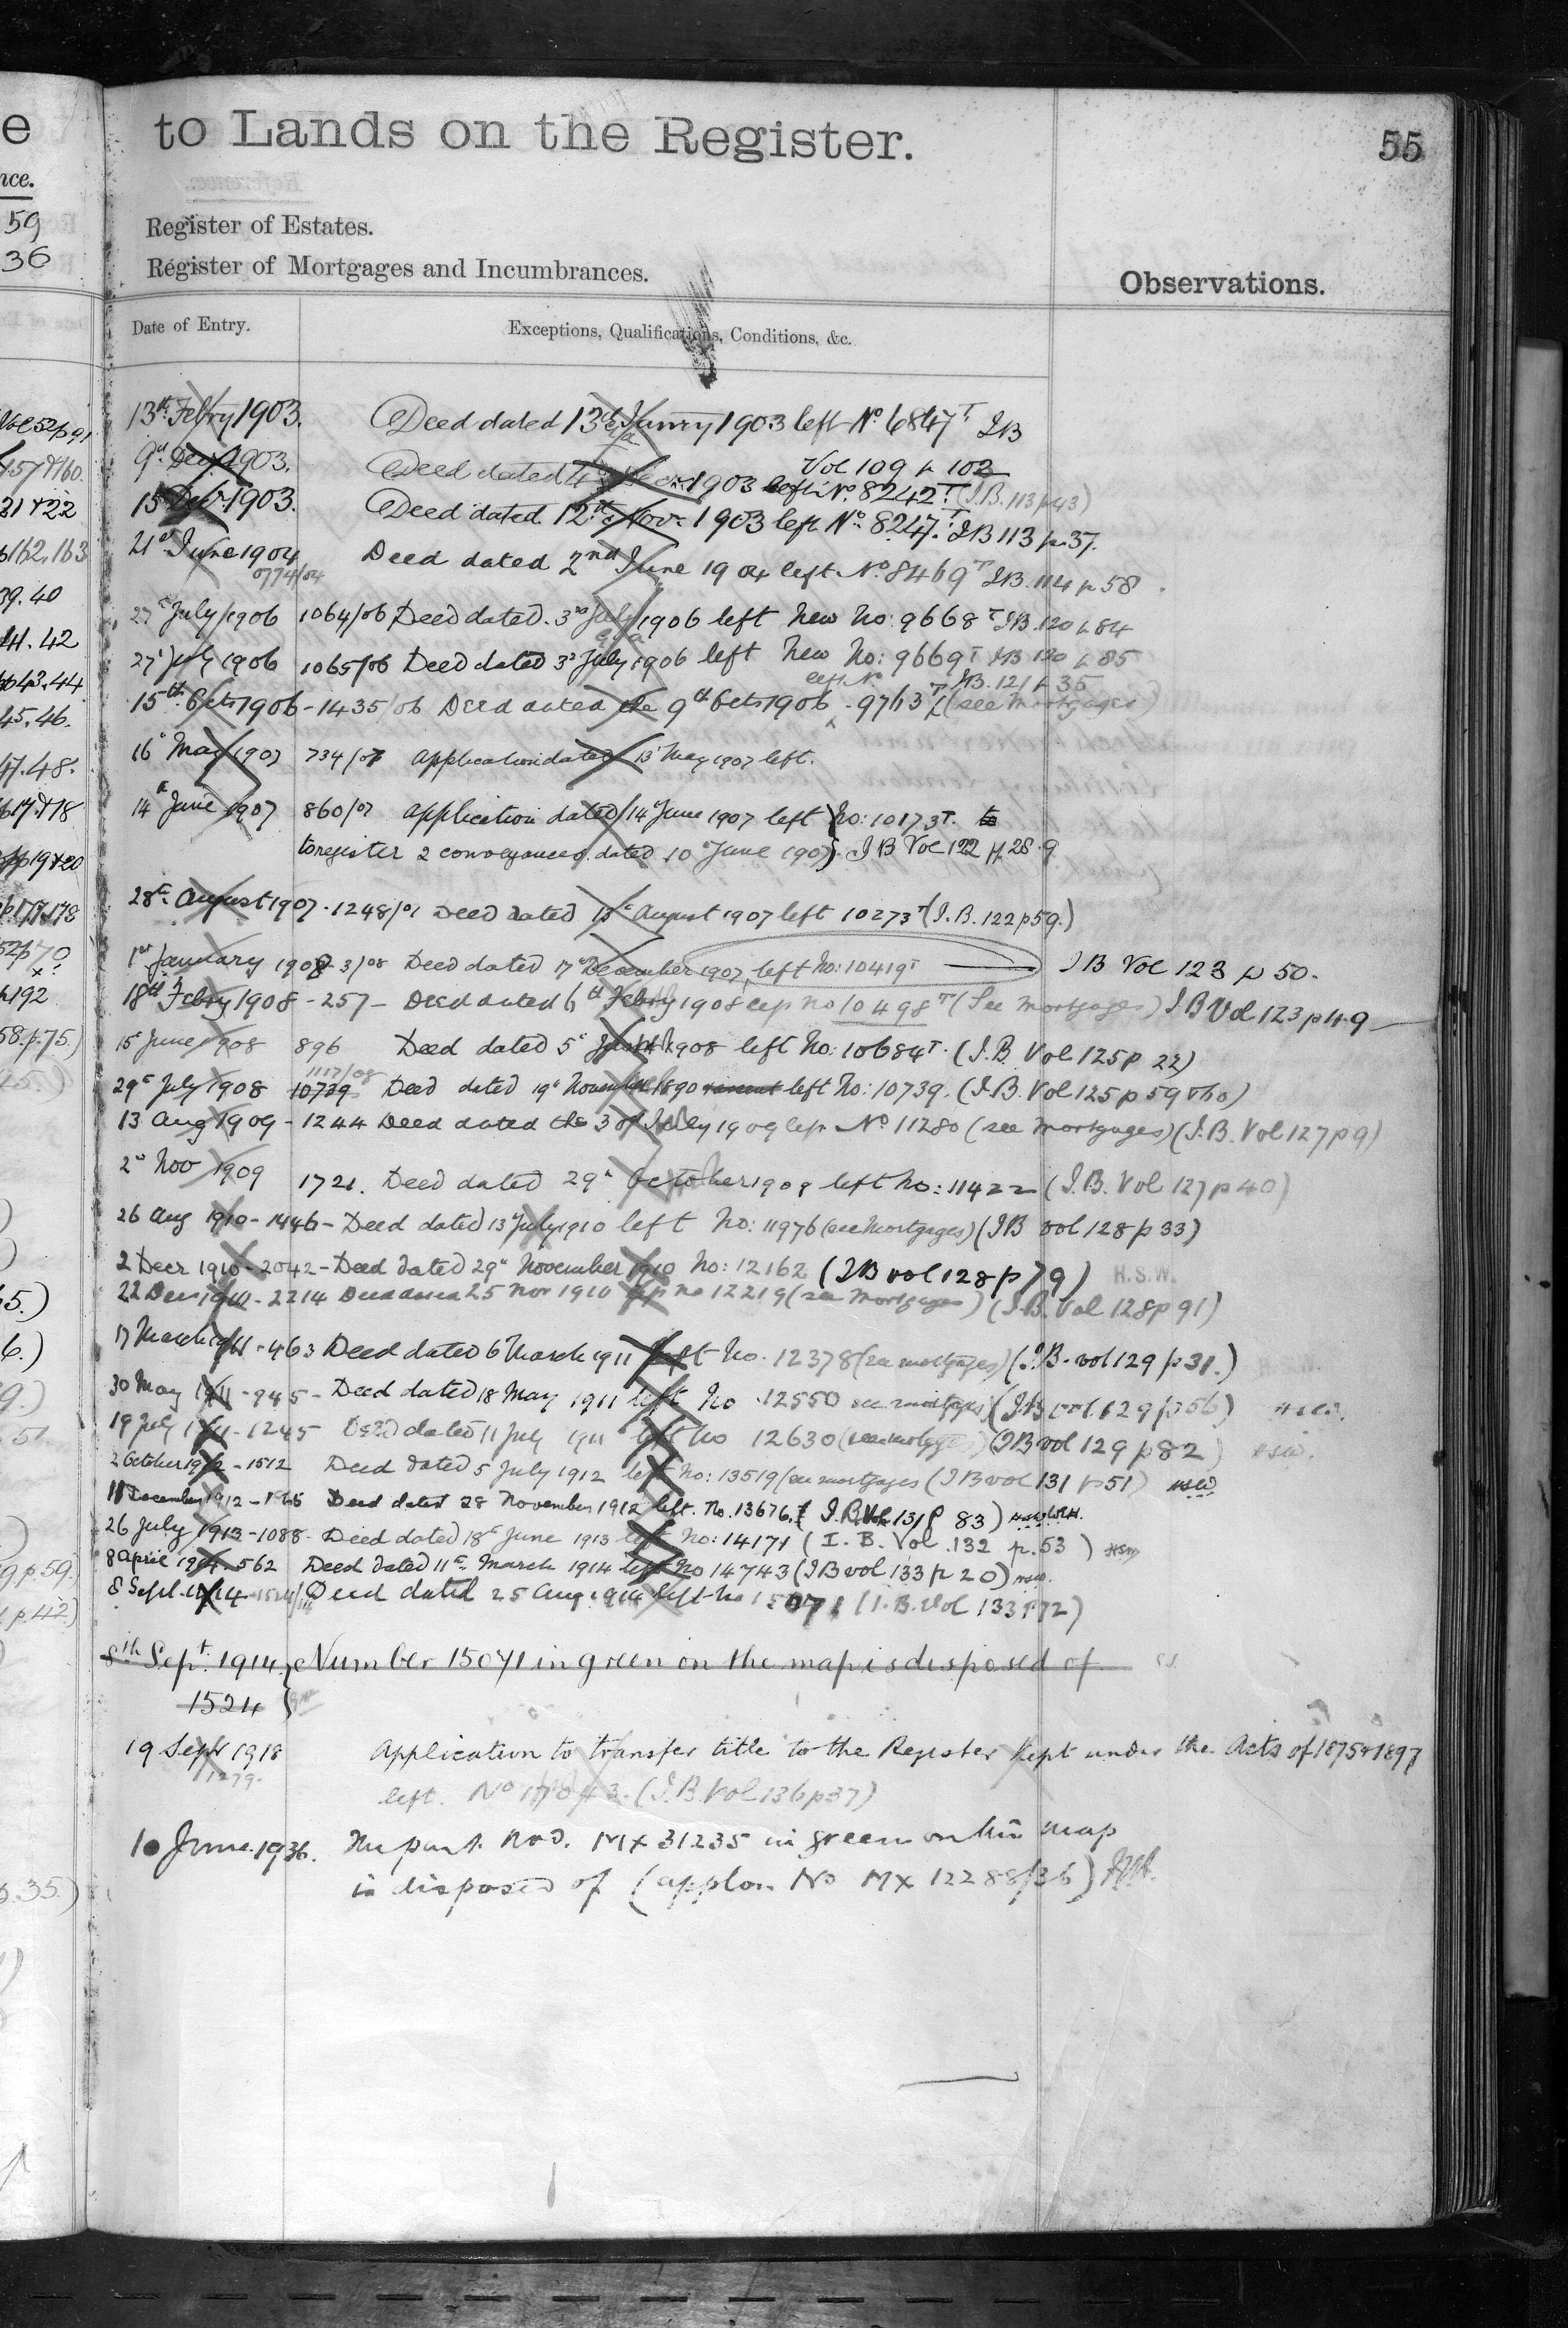 e to Lands on the Register. 55
nce.
59 Register of Estates.
36 Register of Mortgages and Incumbrances.
Observations.
Date of Entry. Exceptions, Qualifications, Conditions, &c.
13th Febry 1903. Deed dated 13th 1903 left No 6847T IB
Vol 109 p 102
9th Decr 1903. Deed dated 4 1903 left No. 8242T (I.B. 113 p 43)
15 Decr 1903. Deed dated 12th Novr 1903 left No. 8247T IB 113 p. 37.
21st June 1904 Deed dated 2nd June 1904 left No. 8469T IB. 114 p 58
0774/04
27 July 1906 1064/06 Deed dated 3rd July 1906 left New No: 9668T IB. 120 p 84
27 July 1906 1065/06 Deed dated 3rd July 1906 left New No: 9669T IB 120 p 85
left No IB. 121 p 35
15th Octr 1906 - 1435/06 Deed dated the 9th Octr 1906 - 9763T (see Mortgages)
16 May 1907 734/07 application dated 13 May 1907 left.
14th June 1907 860/07 application dated 14 June 1907 left No: 10173T. to
to register 2 conveyances dated 10 June 1907 IB Vol 122 p. 28.9
28th August 1907 - 1248/07 Deed dated August 1907 left 10273T (I.B. 122 p 59.)
1st January 1908 - 3/08 Deed dated 17 December 1907, left No: 10419T IB Vol 123 p 50.
18th Febry 1908 - 257 - Deed dated 6th Febry 1908 left no 10498T (See Mortgages) I.B Vol 123 p 49
15 June 1908 896 Deed dated 5 1908 left No: 10684T. (I.B. Vol 125 p 22)
1117/08
29th July 1908 10739 Deed dated 19th November 1890 left No: 10739. (I.B. Vol 125 p 59 & 60)
13 Aug 1909 - 1244 Deed dated the 30 July 1909 left No 11280 (see mortgages) (I.B. Vol 127 p 9)
2nd Nov 1909 1721. Deed dated 29th October 1909 left No: 11422 (I.B. Vol 127 p 40)
26 Aug 1910 - 1446 - Deed dated 13 July 1910 left No: 11976 (see Mortgages) (IB vol 128 p 33)
2 Decr 1910 - 2042 - Deed dated 29th November 1910 No: 12162 (IB vol 128 p 79) H.S.W.
22 Decr 1910 - 2214 Deed dated 25 Nov 1910 left no 12219 (see Mortgages) (I.B. Vol 128 p 91)
17 March 1911 - 463 Deed dated 6 March 1911 left No. 12378 (see mortgages) (I.B. vol 129 p 31.)
30 May 1911 - 945 - Deed dated 18 May 1911 left No 12550 see mortgages (IB vol. 129 p 56) HSW.
19 July 1911 - 1245 Deed dated 11 July 1911 left No 12630 (see mortgages) (IB vol 129 p 82) HSW.
2 October 1912 - 1512 Deed dated 5 July 1912 left No: 13519 (see mortgages (IB vol 131 p 51) HSW.
11 December 1912 - Deed dated 28 November 1912 left. No. 13676. I.B. Vol. 131 p 83) HSW.
26 July 1913 - 1088 - Deed dated 18th June 1913 left No: 14171 (I. B. Vol. 132 p. 53) HSW
8 April 1914 - 562 Deed dated 11th March 1914 left No 14743 (IB vol 133 p 20) HSW.
8 Sept. 1914 - 1524/14 Deed dated 25 Aug. 1914 left No 15071 (I.B. Vol 133 p 72)
8th Sept. 1914. Number 15071 in green on the map is disposed of
1524
19 Septr 1918 Application to transfer title to the Register kept under the Acts of 1875 & 1897
1279. left. No 17043. (I.B. Vol 136 p 37)
10 June 1936. The part No'd. MX 31235 in green on this map
is disposed of (applon. No MX 12288/36)